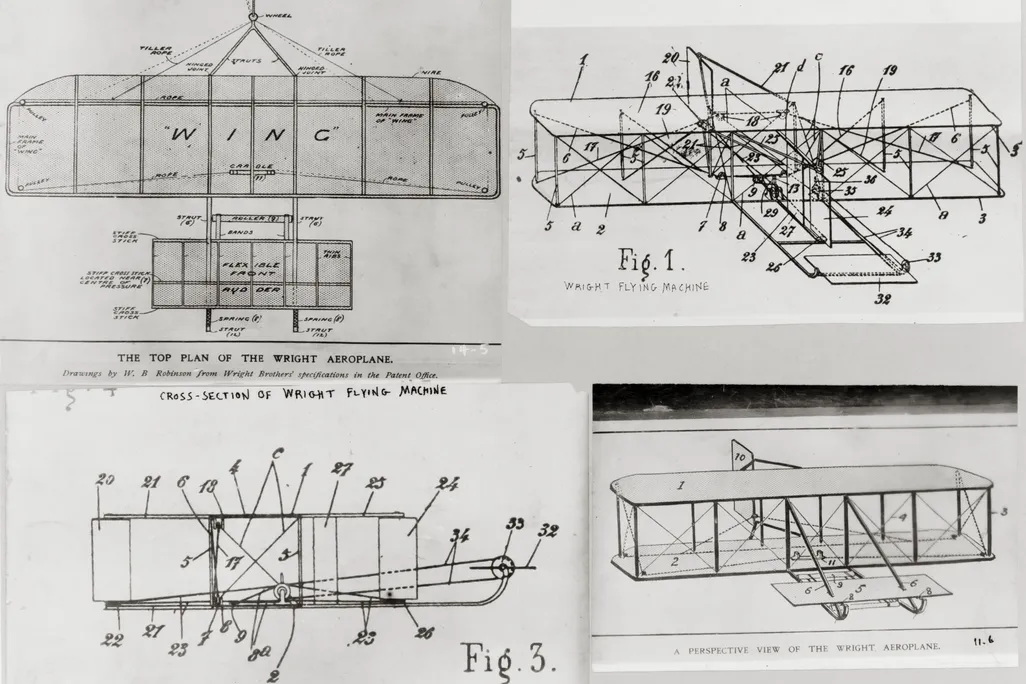 WHEEL
TILLER ROPE
TILLER ROPE
HINGED JOINT
STRUTS
HINGED JOINT
WIRE
ROPE
PULLEY
MAIN FRAME OF "WING"
PULLEY
MAIN FRAME OF "WING"
"WING"
CRADLE
(11)
PULLEY
ROPE
ROPE
PULLEY
STRUT (6)
ROLLER (9)
STRUT (6)
BANDS
STIFF CROSS STICK
THIN RIBS
FLEXIBLE FRONT RUDDER
STIFF CROSS STICK LOCATED NEAR CENTRE OF PRESSURE (7)
STIFF CROSS STICK
SPRING (8)
SPRING (8)
STRUT (12)
STRUT (12)
14-5
THE TOP PLAN OF THE WRIGHT AEROPLANE.
Drawings by W. B Robinson from Wright Brothers' specifications in the Patent Office.
1
20
21
d
c
16
16
19
a
18
19
5
6
17
5
23
17
6
5
5
25
36
35
9
13
29
7
8
a
27
24
34
5
a
2
a
3
23
26
33
32
Fig. 1.
WRIGHT FLYING MACHINE
CROSS-SECTION OF WRIGHT FLYING MACHINE
20
21
6
4
C
1
27
25
24
5
17
5
34
33
32
22
21
23
7
8
9
8
a
2
23
26
Fig. 3.
10
1
3
4
2
11
9
6
5
6
8
8
A PERSPECTIVE VIEW OF THE WRIGHT AEROPLANE.
11.6